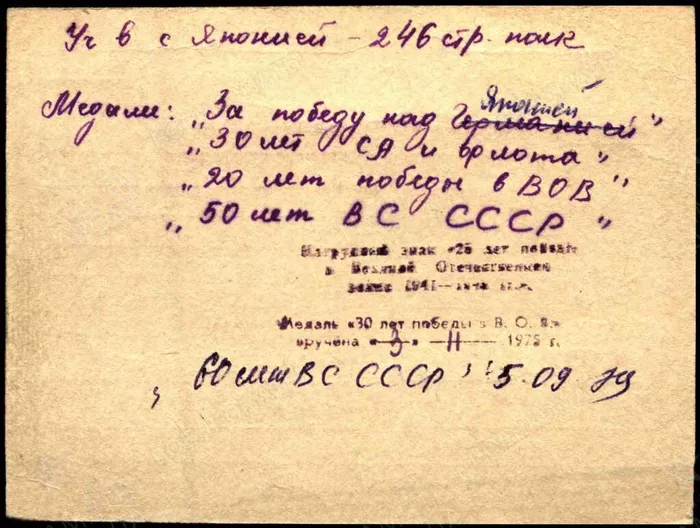 Уч в с Японией - 246 стр. полк
Японией
Медали: „За победу над Германией"
„30 лет СА и флота"
„20 лет победы в ВОВ"
„50 лет ВС СССР"
Нагрудный знак «25 лет победы
в Великой Отечественной
войне 1941—1945 гг.»
Медаль «30 лет победы в В. О. В.»
вручена «3» — II — 1975 г.
„60 лет ВС СССР" 5.09.79